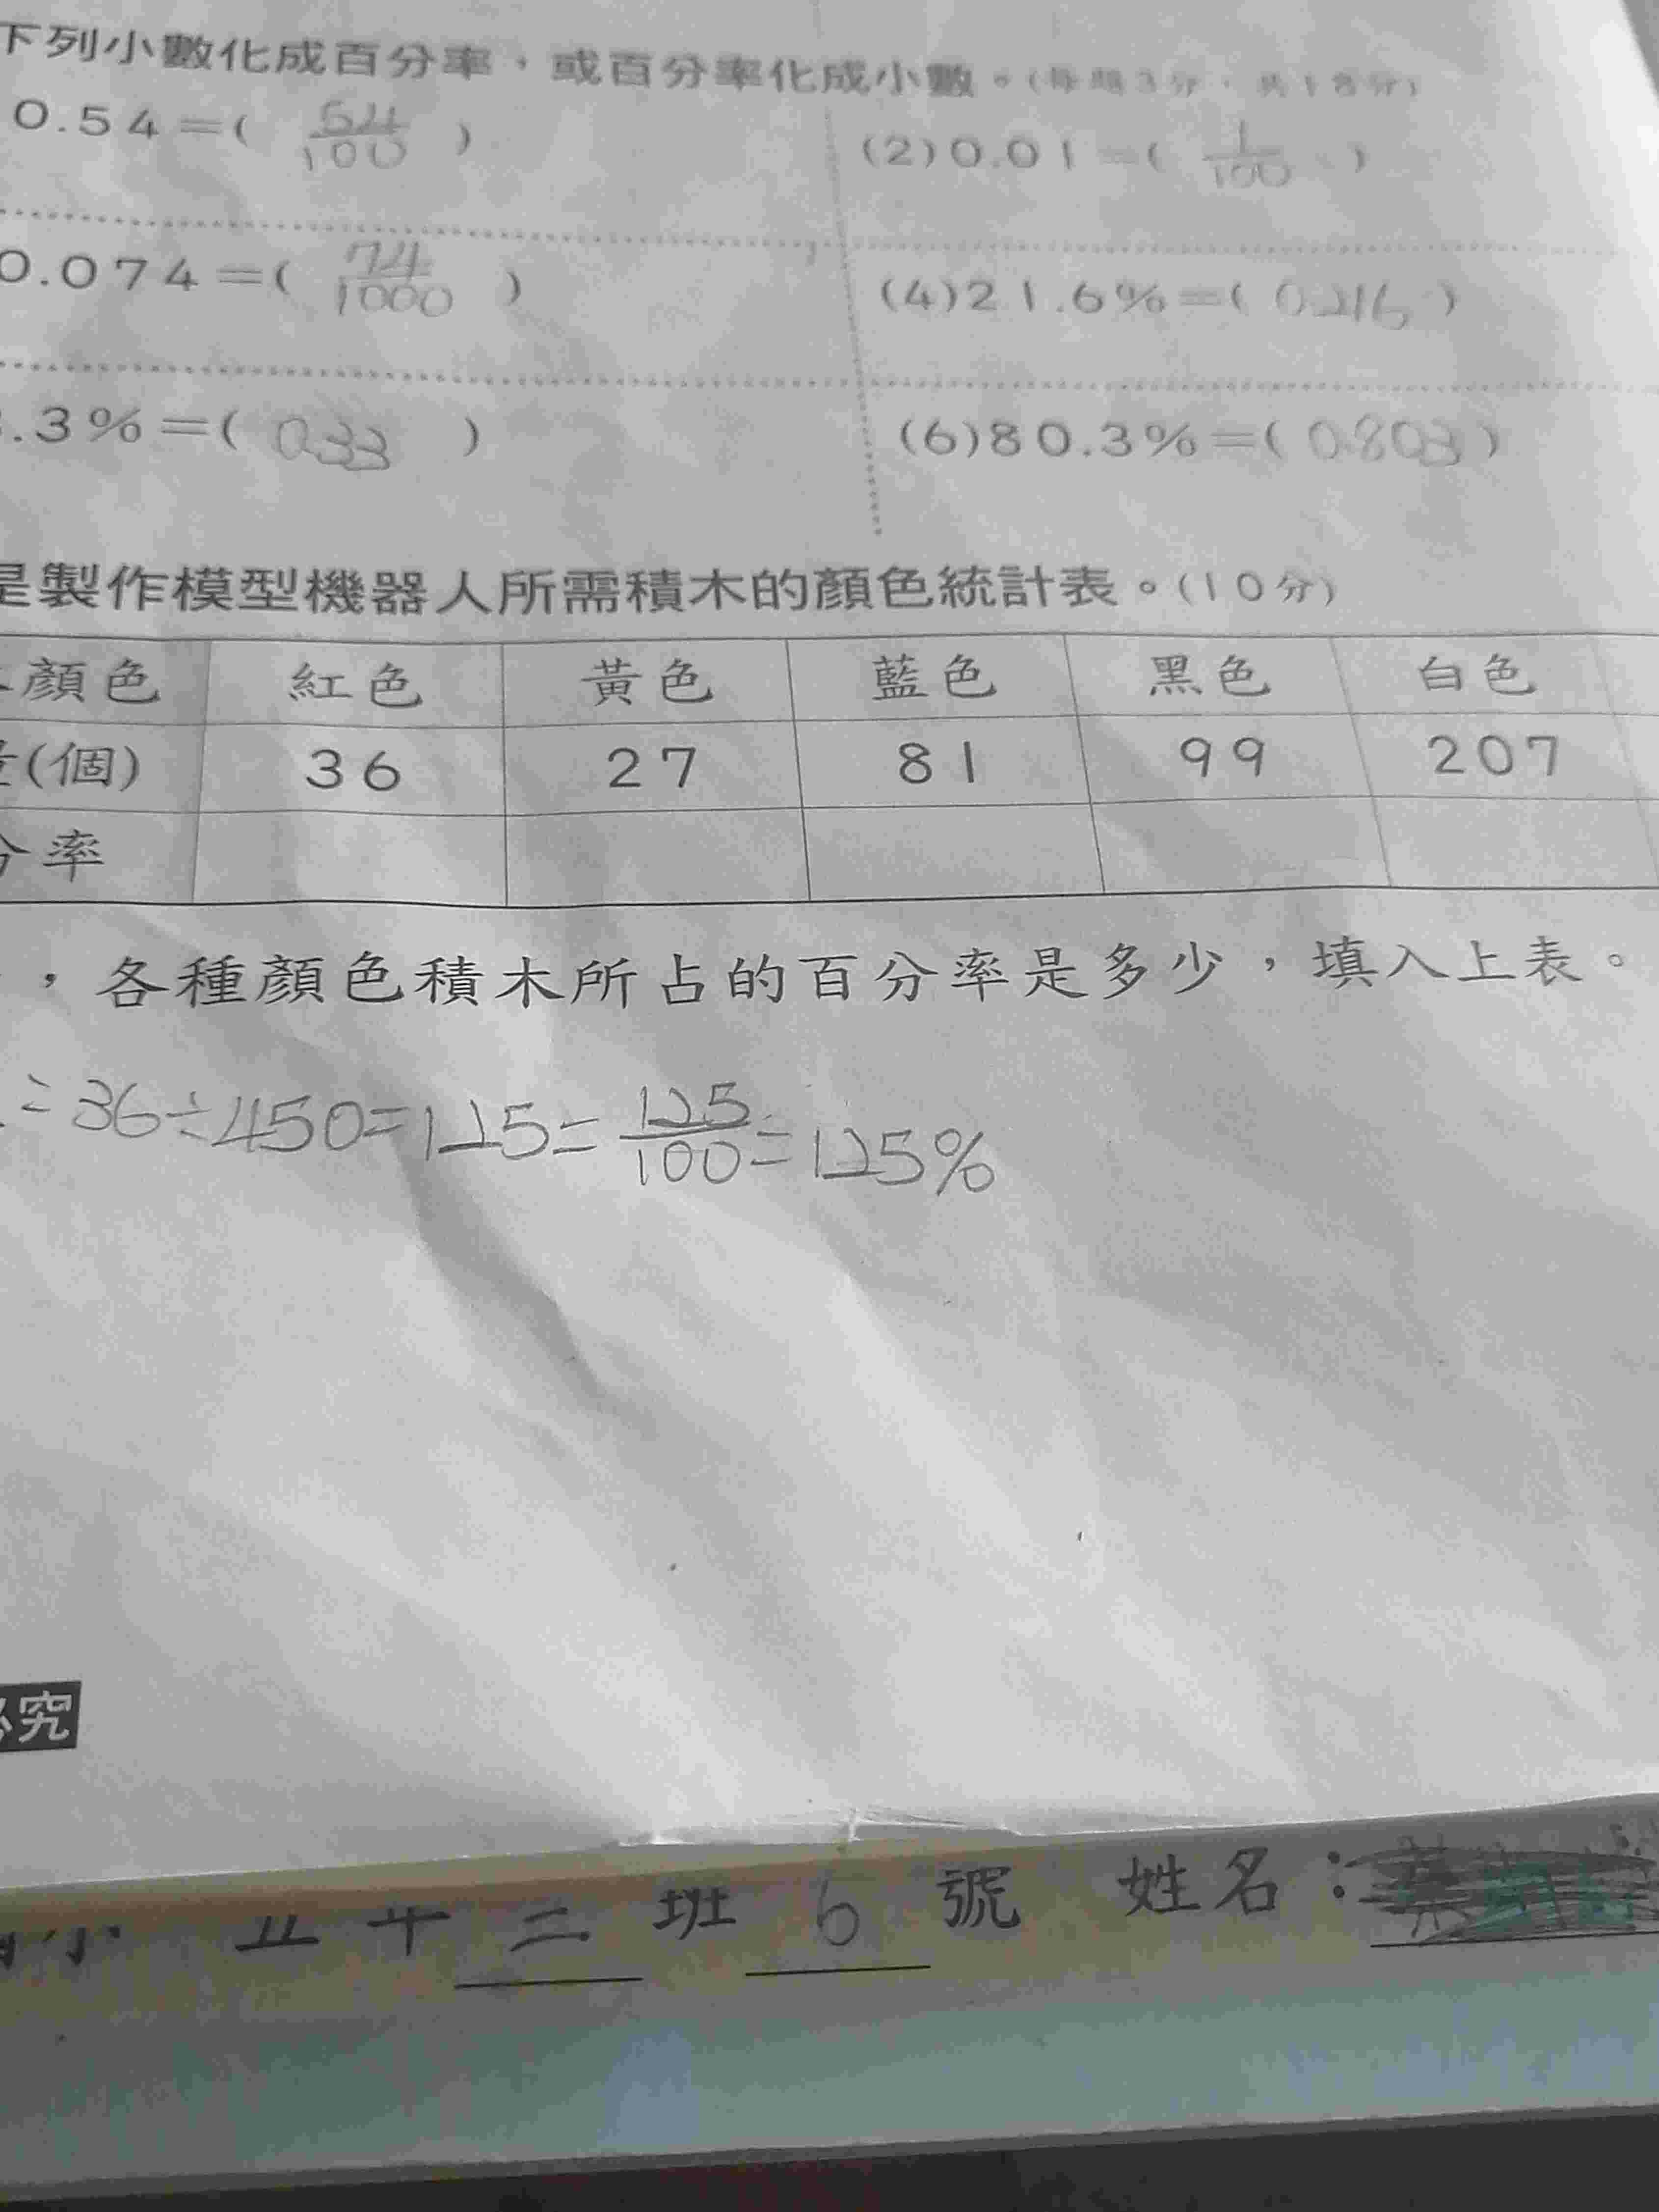 下列小數化成百分率，或百分率化成小數。(每題3分，共18分)
0.54=( 54/100 ) (2)0.01=( 1/100 )
0.074=( 74/1000 ) (4)21.6%=( 0.216 )
.3%=( 0.33 ) (6)80.3%=( 0.803 )
是製作模型機器人所需積木的顏色統計表。(10分)
顏色 紅色 黃色 藍色 黑色 白色
量(個) 36 27 81 99 207
分率
，各種顏色積木所占的百分率是多少，填入上表。
=36÷450=125=125/100=125%
必究
小 五年 二 班 6 號 姓名：